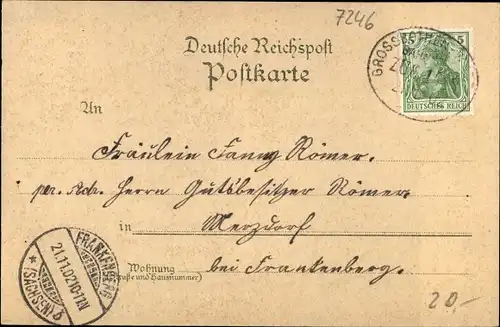 7246
Deutsche Reichspost
Postkarte
5
DEUTSCHES REICH
GROSSBOTHEN
An
Fräulein Fanny Römer.
pr. Adr. Herrn Gutsbesitzer Römer
in Merzdorf
Wohnung bei Frankenberg.
(Straße und Hausnummer)
FRANKENBERG
21.11.02.10-11N
* (SACHSEN) b
20.-